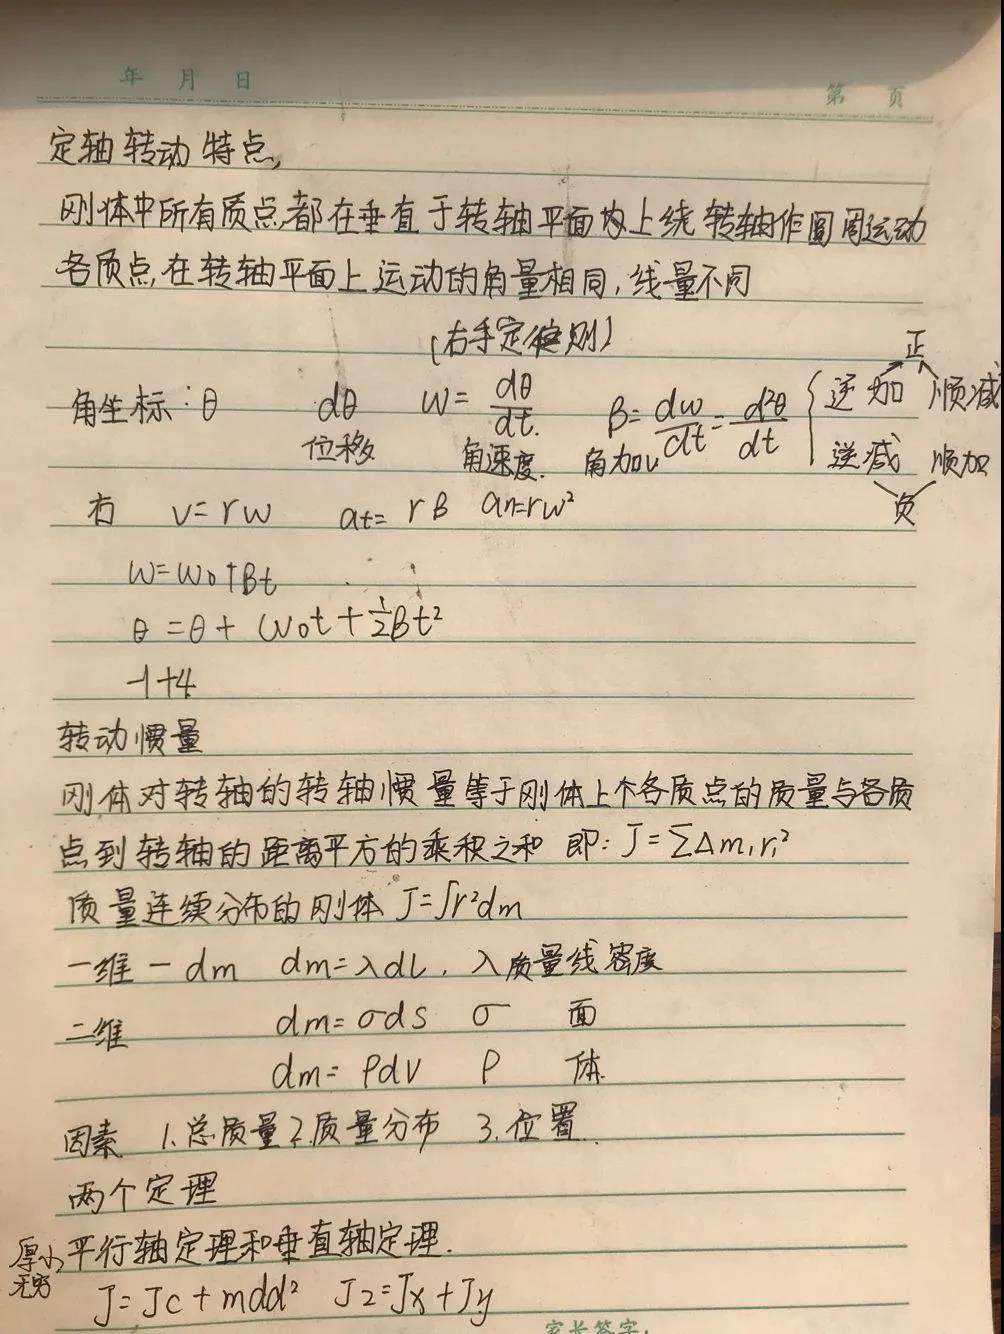 年 月 日
第 页
定轴转动特点,
刚体中所有质点都在垂直于转轴平面内上绕转轴作圆周运动
各质点在转轴平面上运动的角量相同,线量不同
(右手定则)
正
角坐标:θ dθ ω= dθ/dt. β= dω/dt = d²θ/dt { 逆加 顺减
位移 角速度. 角加v 逆减 顺加
负
右 v=rω at= rβ an=rω²
ω=ω0+βt
θ=θ+ω0t+½βt²
-1+4
转动惯量
刚体对转轴的转轴惯量等于刚体上个各质点的质量与各质
点到转轴的距离平方的乘积之和 即: J=∑Δm₁r₁²
质量连续分布的刚体 J=∫r²dm
一维 - dm dm=λdl, λ质量线密度
二维 dm=σds σ 面
dm=ρdV ρ 体.
因素 1.总质量2.质量分布 3.位置.
两个定理
厚小 平行轴定理和垂直轴定理.
无穷 J=Jc+mdd² Jz=Jx+Jy
家长签字: